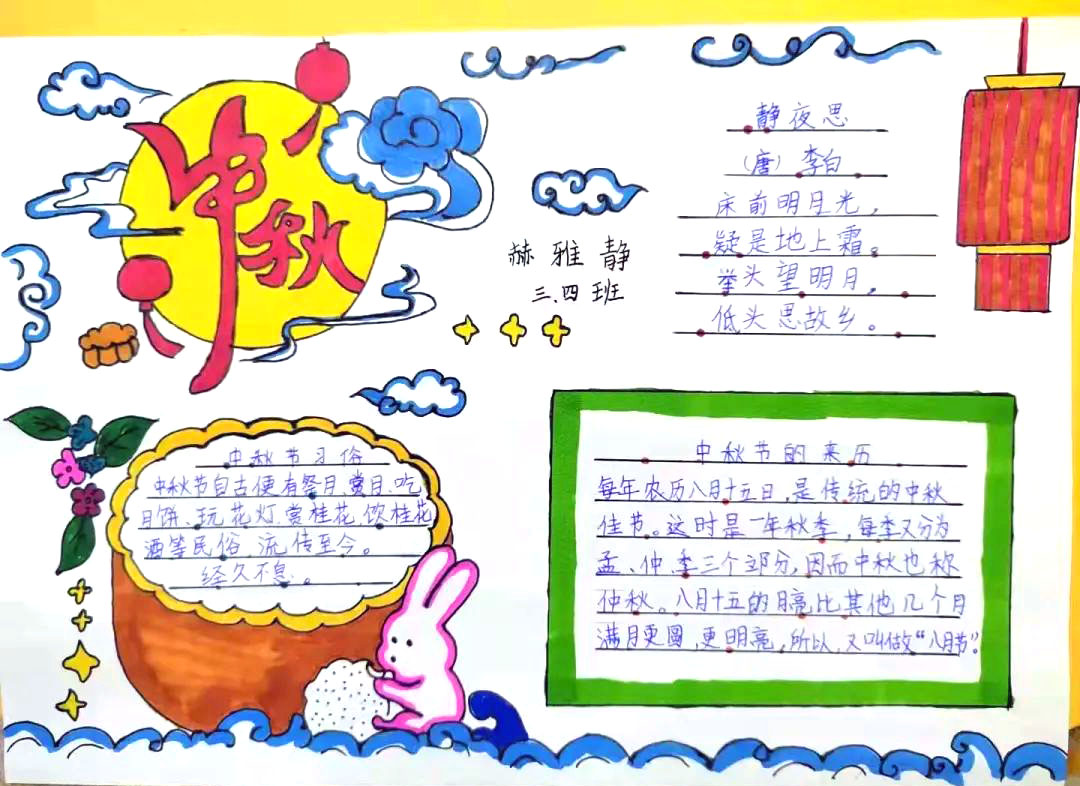 中秋
静夜思
(唐) 李白
床前明月光，
疑是地上霜。
举头望明月，
低头思故乡。
赫雅静
三.四班
中秋节习俗
中秋节自古便有祭月、赏月、吃
月饼、玩花灯、赏桂花、饮桂花
酒等民俗，流传至今。
经久不息。
中秋节的来历
每年农历八月十五日，是传统的中秋
佳节。这时是一年秋季，每季又分为
孟、仲、季三个部分，因而中秋也称
仲秋。八月十五的月亮比其他几个月
满月更圆，更明亮，所以，又叫做“八月节”。